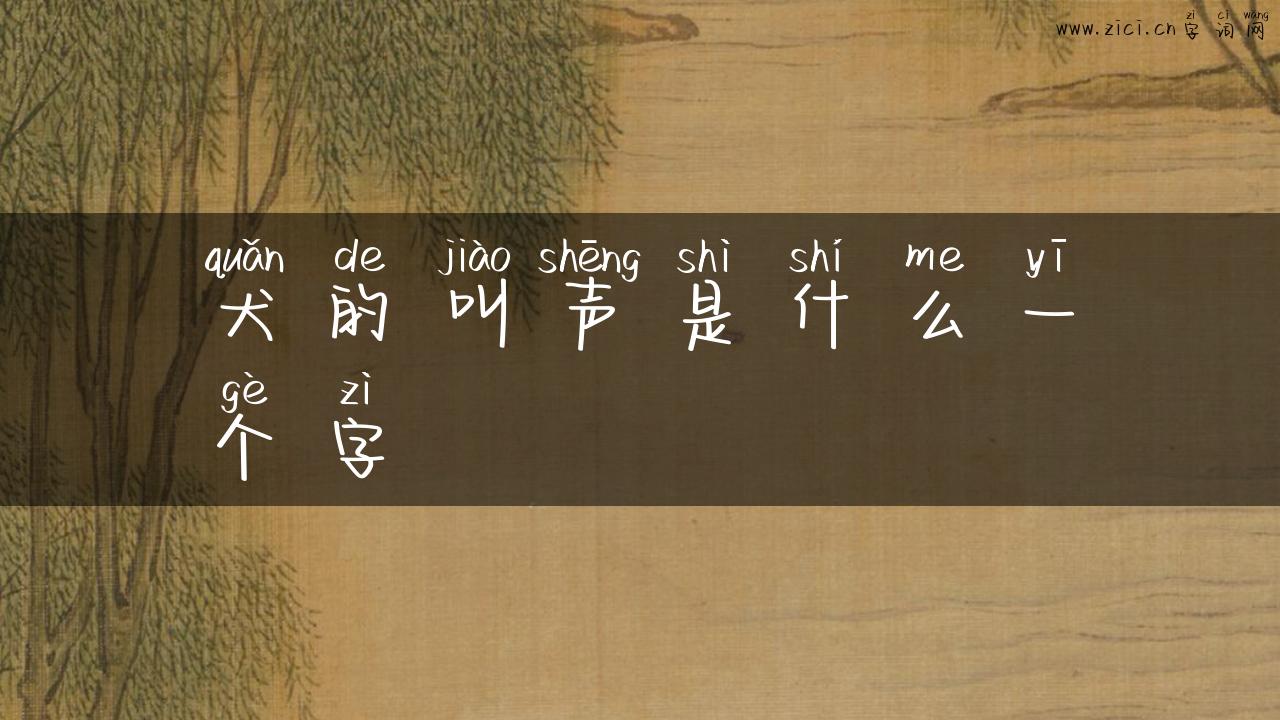 zì cí wǎng
www.zici.cn 字 词 网
quǎn de jiào shēng shì shí me yī
犬 的 叫 声 是 什 么 一
gè zì
个 字